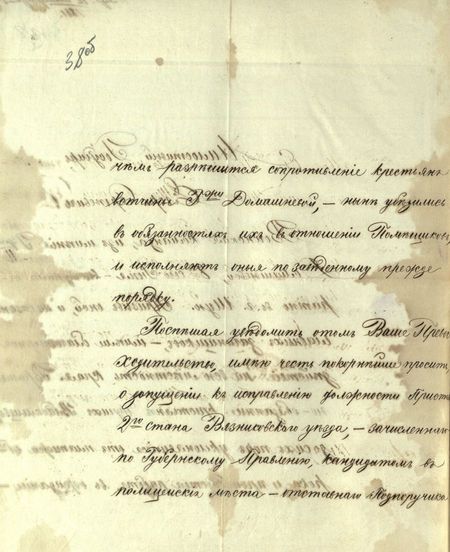 38об
чѣмъ разрѣшится сопротивленіе крестьянъ
вотчины Г-жи Домашневой, – нынѣ убѣдились
въ обязанностяхъ ихъ въ отношеніи Помѣщиковъ,
и исполняютъ оныя по заведенному прежде
порядку.
Поспѣшая увѣдомить о томъ Ваше Прево
сходительство, имѣю честь покорнѣйше просить,
о допущеніи къ исправленію должности Приста
2го стана Вязниковскаго уѣзда, – зачисленнаго
по Губернскому Правленію, кандидатомъ въ
полицейскія мѣста – отставнаго Подпоручика